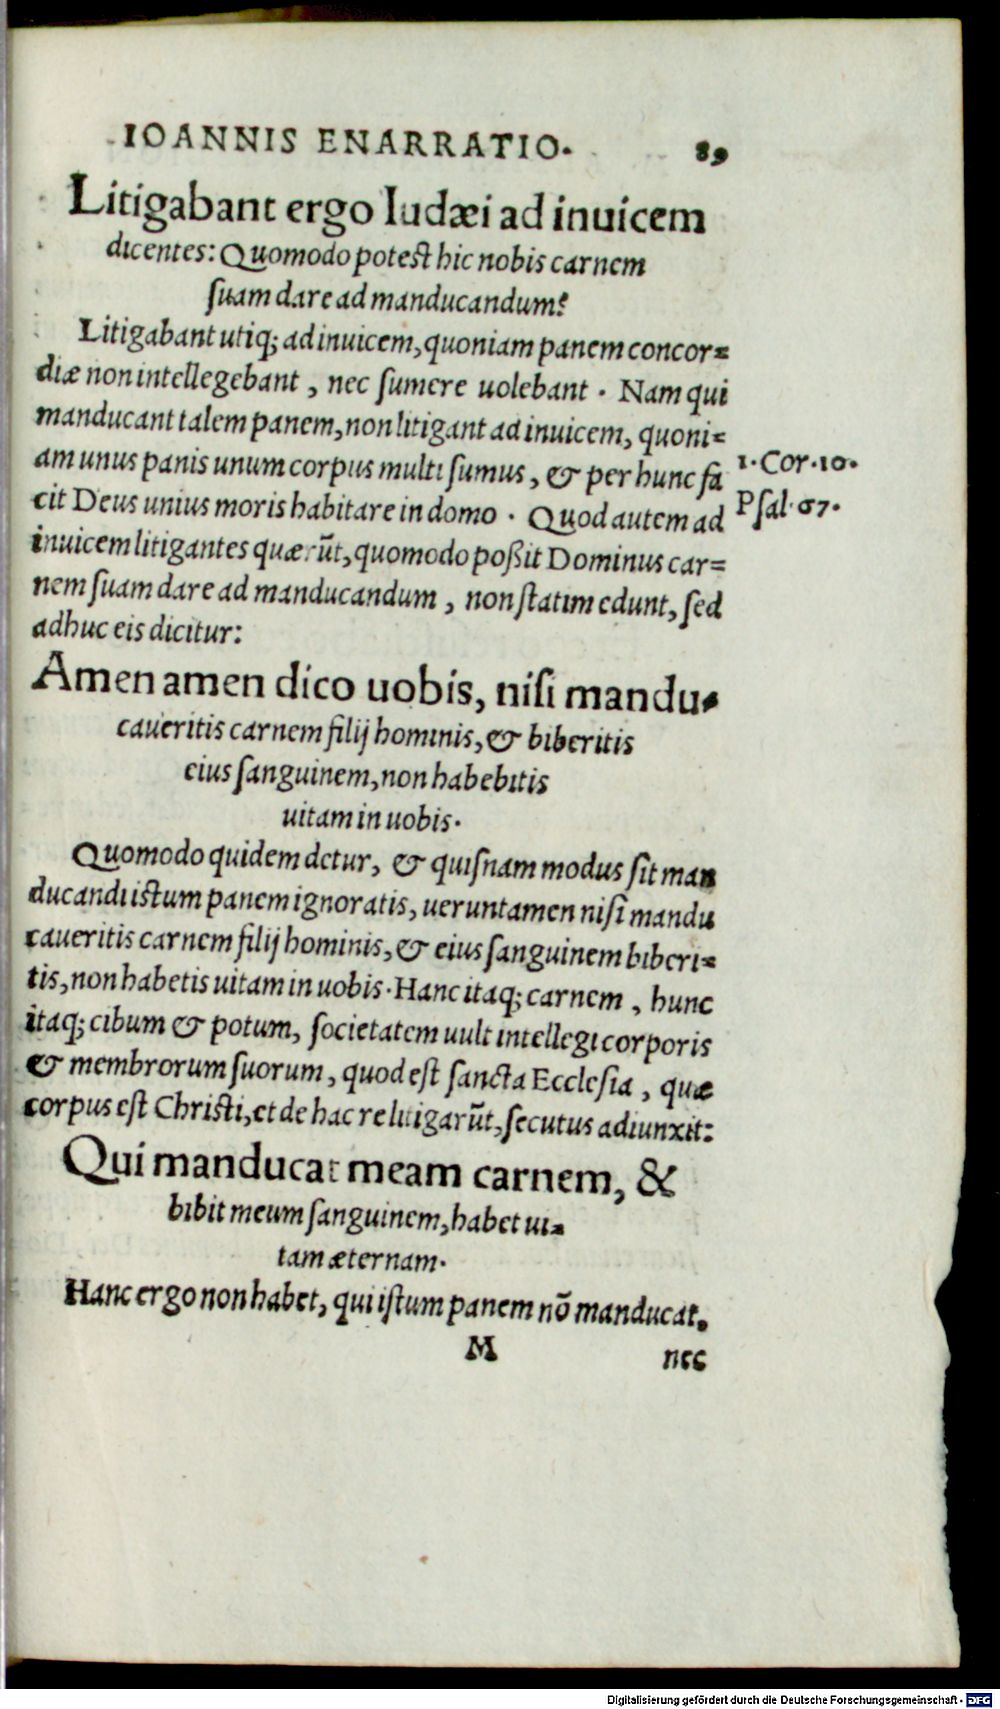 IOANNIS ENARRATIO. 89
Litigabant ergo Iudæi ad inuicem
dicentes: Quomodo potest hic nobis carnem
suam dare ad manducandum?
Litigabant utiq; ad inuicem, quoniam panem concor=
diæ non intellegebant, nec sumere uolebant. Nam qui
manducant talem panem, non litigant ad inuicem, quoni=
am unus panis unum corpus multi sumus, & per hunc fa
1. Cor. 10.
cit Deus unius moris habitare in domo. Quod autem ad
Psal. 67.
inuicem litigantes quærūt, quomodo poßit Dominus car=
nem suam dare ad manducandum, non statim edunt, sed
adhuc eis dicitur:
Amen amen dico uobis, nisi mandu=
caueritis carnem filij hominis, & biberitis
eius sanguinem, non habebitis
uitam in uobis.
Quomodo quidem detur, & quisnam modus sit man
ducandi istum panem ignoratis, ueruntamen nisi mandu
caueritis carnem filij hominis, & eius sanguinem biberi=
tis, non habetis uitam in uobis. Hanc itaq; carnem, hunc
itaq; cibum & potum, societatem uult intellegi corporis
& membrorum suorum, quod est sancta Ecclesia, quæ
corpus est Christi, et de hac re litigarūt, secutus adiunxit:
Qui manducat meam carnem, &
bibit meum sanguinem, habet ui=
tam æternam.
Hanc ergo non habet, qui istum panem nō manducat,
M nec
Digitalisierung gefördert durch die Deutsche Forschungsgemeinschaft - DFG